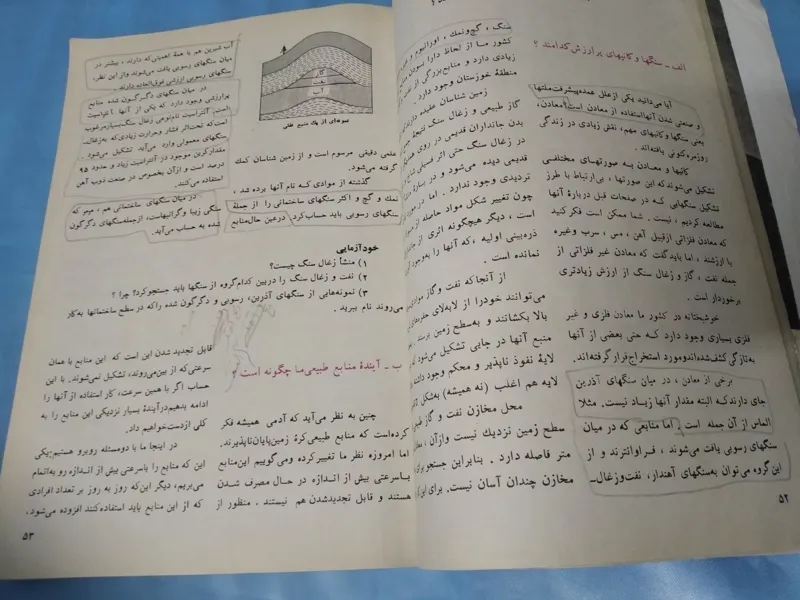 الف ـ سنگها و کانیهای پرارزش کدامند ؟
آیا می‌دانید یکی‌از علل عمده پیشرفت‌ملتها
و صنعتی شدن آنها استفاده از معادن است؟ معادن،
یعنی سنگها و کانیهای مهم، نقش زیادی در زندگی
روزمره‌کنونی یافته‌اند.
کانیها و معادن به صورتهای مختلفی
تشکیل می‌شوند که این صورتها ، بی‌ارتباط با طرز
تشکیل سنگهایی که در صفحات قبل دربارهٔ آنها
مطالعه کردیم ، نیست . شما ممکن است فکر کنید
که معادن فلزاتی ازقبیل آهن ، مس ، سرب وغیره
با ارزشند ، اما باید گفت که معادن غیر فلزاتی از
جمله نفت ، گاز و زغال سنگ از ارزش زیادتری
برخوردار است .
خوشبختانه در کشور ما معادن فلزی و غیر
فلزی بسیاری وجود دارد که حتی بعضی از آنها
به‌تازگی کشف‌شده‌اند و مورد استخراج قرار گرفته‌اند.
برخی از معادن ، در میان سنگهای آذرین
جای دارند که البته مقدار آنها زیاد نیست. مثلا
الماس از آن جمله است . اما منابعی که در میان
سنگهای رسوبی یافت می‌شوند ، فراوانترند و از
این گروه می‌توان به‌سنگهای آهندار، نفت‌وزغال‌ـ
۵۲
سنگ ، گچ‌ونمک ، اورانیوم و
کشور ما از لحاظ دارا بودن
زیادی دارد و منابع بزرگی از
منطقهٔ خوزستان وجود دارد .
زمین شناسان عقیده دارند
گاز طبیعی و زغال سنگ نتیجهٔ
بدن جانداران قدیمی در روی
در زغال سنگ حتی اثر فسیلی
قدیمی دیده می‌شود و در بارهٔ
تردیدی وجود ندارد . اما در
چون تغییر شکل مواد حاصله از
است ، دیگر هیچگونه اثری از
ذره‌بینی اولیه ،که آنها را به‌وجود
نمانده است .
از آنجا که نفت و گاز موادی
می‌توانند خودرا از لابه‌لای
بالا بکشانند و به‌سطح زمین برسند
منبع آنها در جایی تشکیل می‌شود
لایهٔ نفوذ ناپذیر و محکم وجود داشته
لایه هم اغلب (نه همیشه) به‌شکل
محل مخازن نفت و گاز
سطح زمین نزدیک نیست وازآن ،
متر فاصله دارد . بنابراین جستجو برای
مخازن چندان آسان نیست. برای این
گاز
نفت
آب
نمونه‌ای از یک منبع نفتی
علمی دقیقی مرسوم است و از زمین شناسان کمک
گرفته می‌شود.
گذشته از موادی که نام آنها برده شد ،
نمک و گچ و اکثر سنگهای ساختمانی را از جملهٔ
سنگهای رسوبی باید حساب‌کرد. درعین حال‌منابع
آب شیرین هم با همهٔ اهمیتی‌که دارند ، بیشتر در
میان سنگهای رسوبی یافت می‌شوند واز این نظر،
سنگهای رسوبی ارزشی فوق‌العاده دارند .
در میان سنگهای دگرگون شده منابع
پرارزشی وجود دارد که یکی از آنها آنتراسیت
است. آنتراسیت نام‌نوعی زغال سنگ‌بسیارمرغوب
است‌که تحت‌اثر فشار وحرارت زیادی‌که به‌زغال‌ـ
سنگهای معمولی وارد می‌آید تشکیل می‌شود .
مقدارکربن موجود در آنتراسیت زیاد و حدود ۹۵
درصد است و ازآن بخصوص در صنعت ذوب آهن
استفاده می‌کنند.
در میان سنگهای ساختمانی هم ، مرمر که
سنگی زیبا و گرانبهاست، ازجمله‌سنگهای دگرگون
شده به حساب می‌آید.
خودآزمایی
۱) منشأ زغال سنگ چیست؟
۲) نفت و زغال سنگ را دربین کدام‌گروه از سنگها باید جستجوکرد؟ چرا ؟
۳) نمونه‌هایی از سنگهای آذرین، رسوبی و دگرگون شده را که در سطح ساختمانها به‌کار
می‌روند نام ببرید .
ب ـ آیندهٔ منابع طبیعی‌ما چگونه است ؟
چنین به نظر می‌آید که آدمی همیشه فکر
کرده‌است که منابع طبیعی کرهٔ زمین‌پایان‌ناپذیرند.
اما امروزه نظر ما تغییرکرده ومی‌گوییم این‌منابع
باسرعتی بیش از اندازه در حال مصرف شدن
هستند و قابل تجدیدشدن هم نیستند . منظور از
قابل تجدید نشدن این است که این منابع با همان
سرعتی‌که از بین‌می‌روند، تشکیل نمی‌شوند. با این
حساب اگر با همین سرعت، کار استفاده از آنها را
ادامه بدهیم‌درآیندهٔ بسیار نزدیکی این منابع را به
کلی ازدست‌خواهیم داد.
در اینجا ما با دومسئله روبرو هستیم:یکی
این که منابع را باسرعتی بیش از انـدازه رو به‌اتمام
می‌بریم، دیگر این‌که روز به روز بر تعداد افرادی
که از این منابع باید استفاده‌کنند افزوده می‌شود.
۵۳